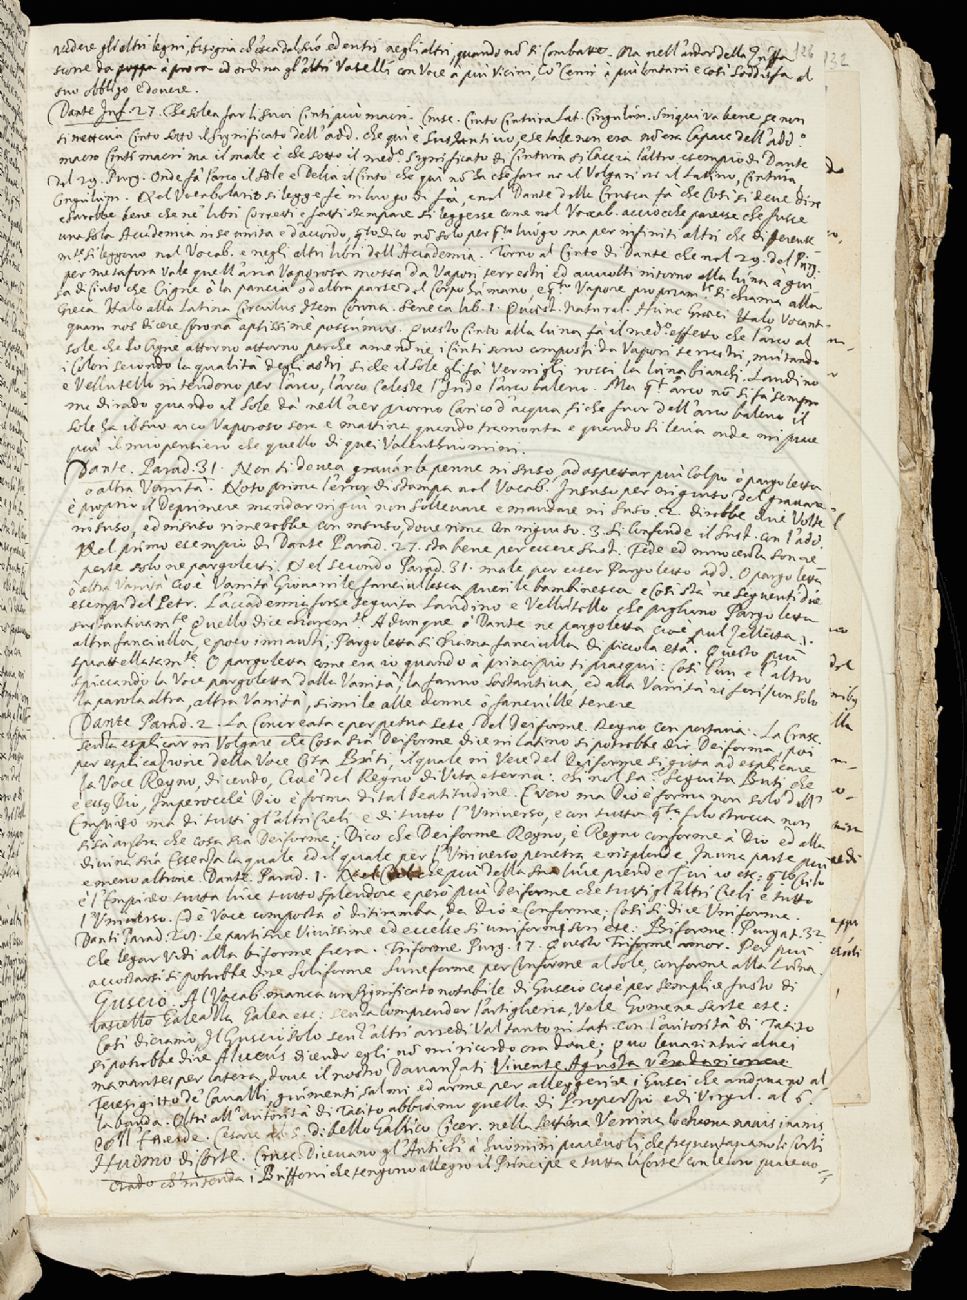 vedere gli altri legni, bisogna ch'esca dal suo ed entri negli altri, quando nõ si combatte. Ma nell'ardor della
sione da poppa a prora ed ordina gl'altri Vaselli con Voce à piu Vicini, cõ Cenni à più lontani e così Soddisfa al
suo obbligo e dovere.
126 132
Dante Inf. 27. Che solea far li suoi Cinti più macri. Crusc. Cinto Cintura Lat. Cingulum. Sin qui va bene, se non
si metteva Cinto sotto il significato dell'add. che qui è Sustantivo, e se tale non era nõ era Capace dell'add.o
macro Cinti macri ma il male è che sotto il med.o significato di Cintura si faccia l'altro esempio di Dante
del 29. Purg. Onde fà l'arco il Sole e Delia il Cinto che qui nõ
Cingulum. Nel Vocabolario si legge fè in luogo di fà, e nel Dante della Crusca fà che Così si deve dire
e sarebbe bene che ne' libri Corretti e fatti stampare si leggesse come nel Vocab. acciocche paresse che fusse
una sola Accademia insieme unita e d'accordo, q.to dico nõ solo per q.to luogo ma per infiniti altri che differente-
m.te si leggono nel Vocab. e negli altri libri dell'Accademia. Torno al Cinto di Dante che nel 29. del Purg.
per metafora Vale quell'aria Vaporosa mossa da Vapori terrestri ed avvolti intorno alla luna à gui-
sa di Cinto che Cigne ò la pancia od altra parte del Corpo humano, e q.to Vapore propriam.te si chiama alla
Greca Halo alla Latina Circulus Item Corona. Seneca lib. 1. Quest. Natural. Hunc Graeci Halo Vocant
quam nos dicere Corona aptissime possumus. Questo Cinto alla luna fà il med.o effetto che l'arco al
sole che lo Cigne attorno attorno perche amendue i Cinti sono composti da Vapori terrestri, mutando
i Colori secondo la qualità degli astri si che il Sole gli fà Vermigli rossi la luna bianchi. Landino
e Vellutello intendono per l'arco, l'arco Celeste l'Iride l'arco baleno. Ma q.to arco nõ si fà sempre
me di rado quando il Sole dà nell'aer piorno Carico d'acqua si che fuor dell'arco baleno il
sole hà il suo arco Vaporoso sera e mattina quando tramonta e quando si leva onde mi piace
più il mio pensiero che quello di quei Valenthuomini.
Dante. Parad. 31. Non ti dovea gravar le penne in suso, ad aspettar più Colpo ò pargoletta
o altra Vanità. Noto prima l'error di stampa nel Vocab. Insuso per in giuso del gravare
è proprio il deprimere mandar in giù non sollevare e mandare in suso. 2. direbbe due Volte
in suso, ed insuso rimerebbe con insuso, dove rima Con in giuso. 3. Si Confonde il Sust. con l'add.
Nel primo esempio di Dante Parad. 27. sta bene per essere Sust. Fede ed innocenza son re-
perte solo ne pargoletti. Nel secondo Parad. 31. male per esser Pargoletta add. O pargoletta
ò altra Vanità Cioè Vanità Giovanile fanciullesca puerile bambinesca e Così stà ne seguenti due
esempi del Petr. L'accademia forse seguita Landino e Vellutello che pigliano Pargoletta
sustantivam.te Quello dice chiarem.te Adunque ò Dante ne pargoletta Cioè pulzelletta,
altra fanciulla, e poco innanti, Pargoletta si chiama fanciulla di piccola età. Questo più
spiattellatam.te O pargoletta come era io quando à principio ti piacqui: Così l'un e l'altro
spiccando la Voce pargoletta dalla Vanità, la fanno Sustantiva, ed alla Vanità
la parola altra, altra Vanità, simile alle donne ò fanciulle tenere
Dante Parad. 2. La Concreata e perpetua sete. Del Deiforme Regno Cen portava. La Crusc.
senza esplicar in Volgare che Cosa sia Deiforme dice in Latino si potrebbe dir Deiforma, poi
per esplicazione della Voce Cita Buti, il quale in Vece del Deiforme si gitta ad esplicare
la Voce Regno, dicendo, Cioè del Regno di Vita eterna: Seguita Buti, che
è esso Dio, Imperocche Dio è forma di tal beatitudine. E vero ma Dio è forma non solo dell'
Empireo ma di tutti gl'altri Cieli e di tutto l'Universo, e con tutta q.ta filastrocca non
si sà ancora che cosa sia Deiforme. Dico che Deiforme Regno, è Regno conforme à Dio ed alla
divina sua Essenza la quale ed il quale per l'Universo penetra e risplende, In una parte più
e meno altrove. Dante Parad. 1. Nel Ciel che più della sua luce prende Fu' io etc: q.to Cielo
è l'Empireo tutta luce tutto splendore e però più Deiforme che tutti gl'altri Cieli e tutto
l'Universo. Ed è Voce composta ò ditiramba, da Dio e Conforme; Così si dice Uniforme.
Dante Parad. 27. Le parti sue Vivissime ed eccelse Si uniforme son etc: Biforme. Purgat. 32
Che legar vidi alla biforme fiera. Triforme Purg. 17. Questo Triforme amor. Per più
accostarsi si potrebbe dire Soliforme Luneforme per Conforme al Sole, conforme alla Luna.
Guscio. Al Vocab. manca un significato notabile di Guscio cioè per semplice fusto di
Vascello Galeazza Galea etc: senza comprender l'artiglieria, Vele Gomene Sarte etc:
Così diciamo, Il Guscio solo senz'altri arredi Val tanto in Lat. con l'autorità di Tacito
si potrebbe dire Alveus dicendo egli nõ mi ricordo ora dove; quo levarentur alvei
manantes per latera, dove il nostro Davanzati Vincente Agusta
Feresi gitto de' Cavalli, giumenti salmi ed arme per alleggerire i Gusci che andavano al-
la banda. Oltre all'autorità di Tacito abbiamo quella di Properzio e di Virgil. al 6.
dell'Eneide. Cesare al 5. de bello Gallico Cicer. nella settima Verrina lo chiama navis inanis
Huomo di Corte. Crusc. Dicevano gl'Antichi à huomini piacevoli che frequentavano le Corti
Buffoni che tengono allegro il Principe e tutta la Corte con le loro piacevo-